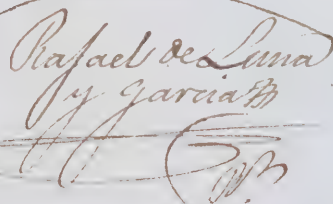 Rafael de Luna
y Garcia